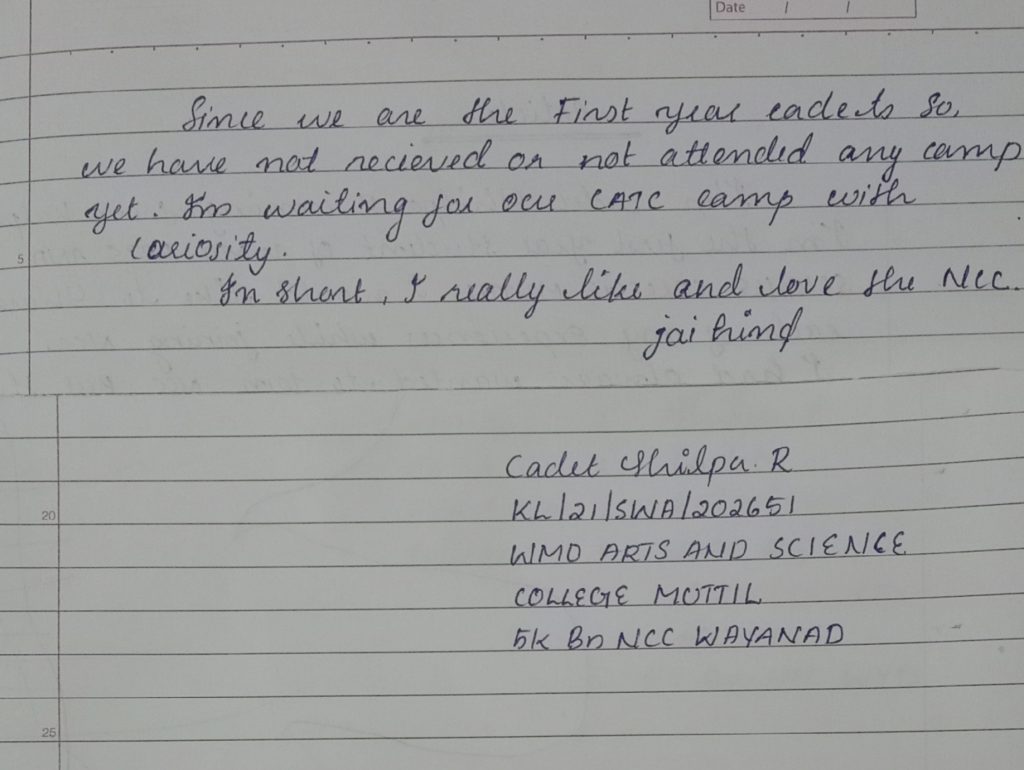 Date / /
Since we are the First year cadets So,
we have not recieved or not attended any camp
yet. I'm waiting for our CATC camp with
5
curiosity.
In short, I really like and love the NCC.
jai hind
Cadet Shilpa. R
20
KL/21/SWA/202651
WMO ARTS AND SCIENCE
COLLEGE MUTTIL
5K Bn NCC WAYANAD
25